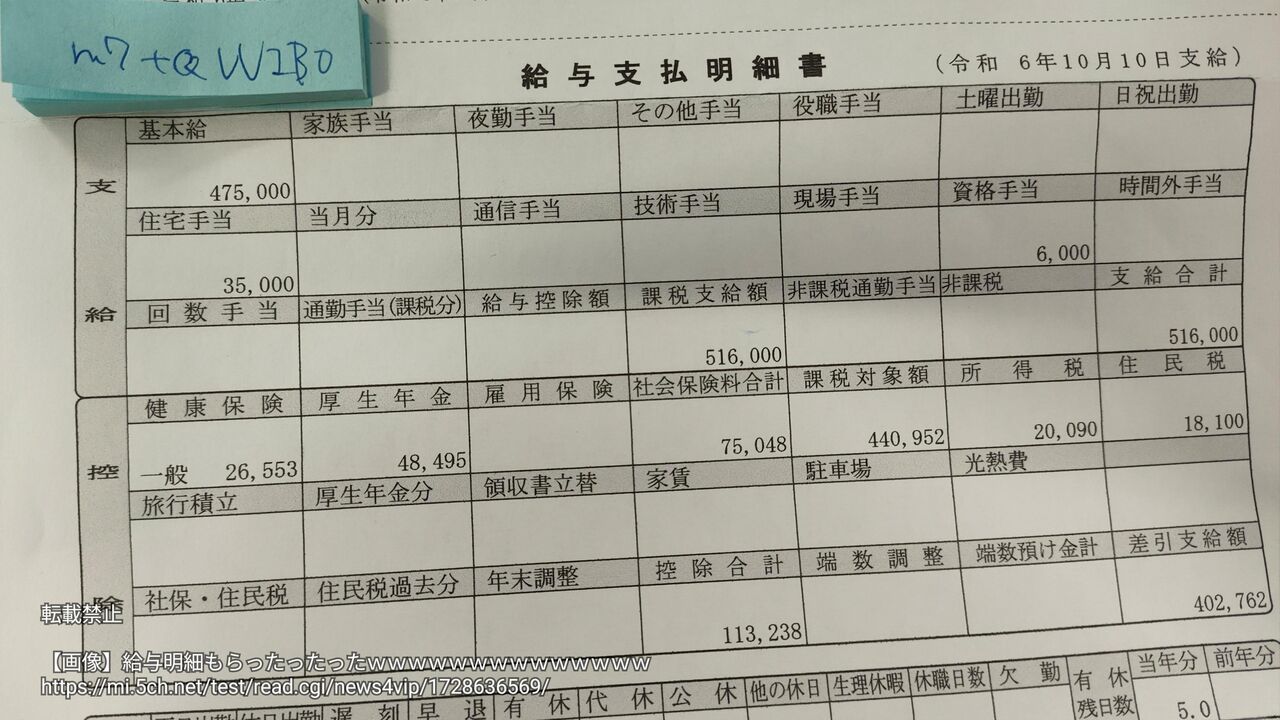 m7+Q W2B0
給与支払明細書
(令和 6年10月10日支給)
支給
基本給 家族手当 夜勤手当 その他手当 役職手当 土曜出勤 日祝出勤
475,000
住宅手当 当月分 通信手当 技術手当 現場手当 資格手当 時間外手当
35,000 6,000
回数手当 通勤手当(課税分) 給与控除額 課税支給額 非課税通勤手当 非課税 支給合計
516,000 516,000
控除
健康保険 厚生年金 雇用保険 社会保険料合計 課税対象額 所得税 住民税
一般 26,553 48,495 75,048 440,952 20,090 18,100
旅行積立 厚生年金分 領収書立替 家賃 駐車場 光熱費
社保・住民税 住民税過去分 年末調整 控除合計 端数調整 端数預け金計 差引支給額
113,238 402,762
転載禁止
【画像】給与明細もらったったったwwwwwwwwwwwwwww
https://mi.5ch.net/test/read.cgi/news4vip/1728636569/
遅刻 早退 有休 代休 公休 他の休日 生理休暇 休職日数 欠勤 有休残日数 当年分 前年分
5.0